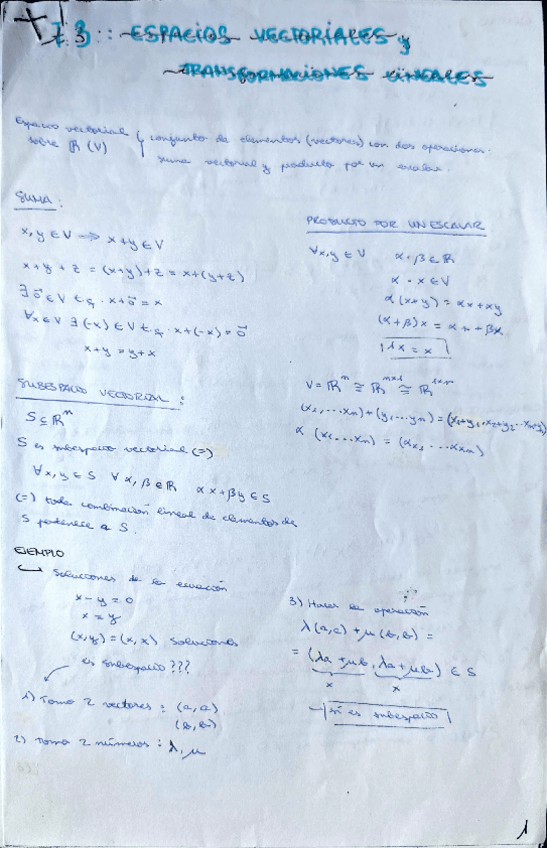 T3 :: ESPACIOS VECTORIALES y
TRANSFORMACIONES LINEALES
Espacio vectorial { conjunto de elementos (vectores) con dos operaciones.
sobre ℝ (V) suma vectorial y producto por un escalar.
SUMA:
x, y ∈ V → x+y ∈ V
x+y+z = (x+y)+z = x+(y+z)
∃ 0⃗ ∈ V t.q. x+0⃗ = x
∀x ∈ V ∃(-x) ∈ V t.q. x+(-x) = 0⃗
x+y = y+x
PRODUCTO POR UN ESCALAR
∀x, y ∈ V α, β ∈ ℝ
α · x ∈ V
α(x+y) = αx + αy
(α+β)x = αx + βx
1·x = x
V = ℝⁿ ≅ ℝⁿˣ¹ ≅ ℝ¹ˣⁿ
(x₁, ... xₙ) + (y₁ ... yₙ) = (x₁+y₁, x₂+y₂ ... xₙ+yₙ)
α (x₁ ... xₙ) = (αx₁ ... αxₙ)
SUBESPACIO VECTORIAL :
S ⊆ ℝⁿ
S es subespacio vectorial (=)
∀x, y ∈ S ∀α, β ∈ ℝ αx + βy ∈ S
(=) toda combinación lineal de elementos de
S pertenece a S.
EJEMPLO
Soluciones de la ecuación
x - y = 0
x = y
(x, y) = (x, x) soluciones
es subespacio???
1) Tomo 2 vectores : (a, a)
(b, b)
2) Tomo 2 números : λ, μ
3) Hacer la operación
λ(a, a) + μ(b, b) =
= (λa + μb, λa + μb) ∈ S
x x
sí es subespacio
1